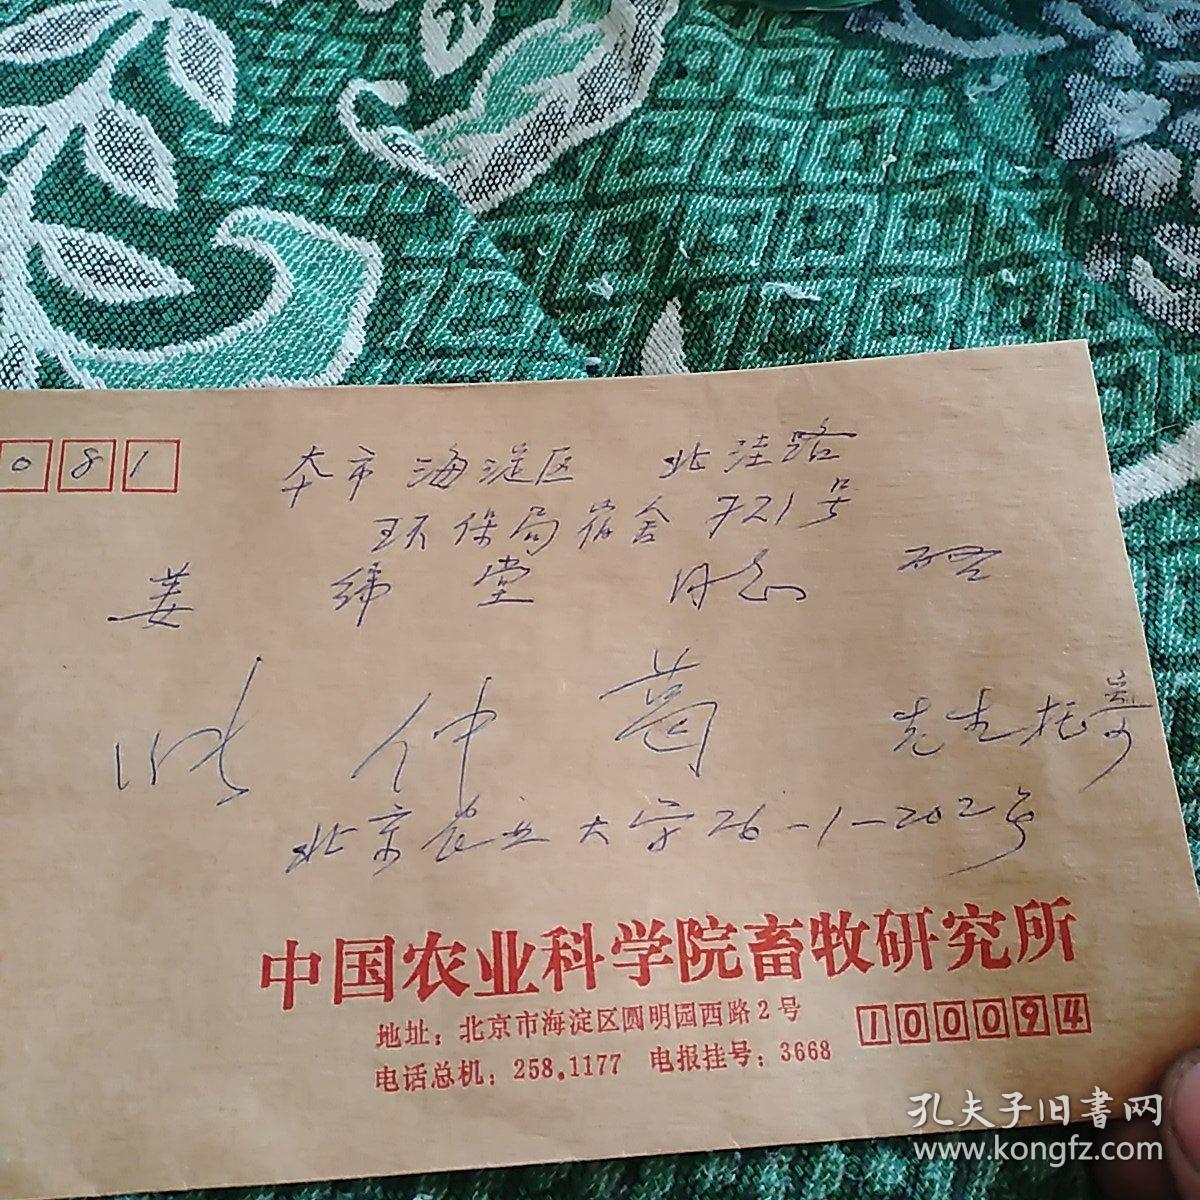 081
本市海淀区 北洼路
环保局宿舍 721号
姜纬堂 同志 启
仲
先生托寄
北京农业大学26-1-202号
中国农业科学院畜牧研究所
地址：北京市海淀区圆明园西路2号
100094
电话总机：258.1177 电报挂号：3668
孔夫子旧書网
www.kongfz.com